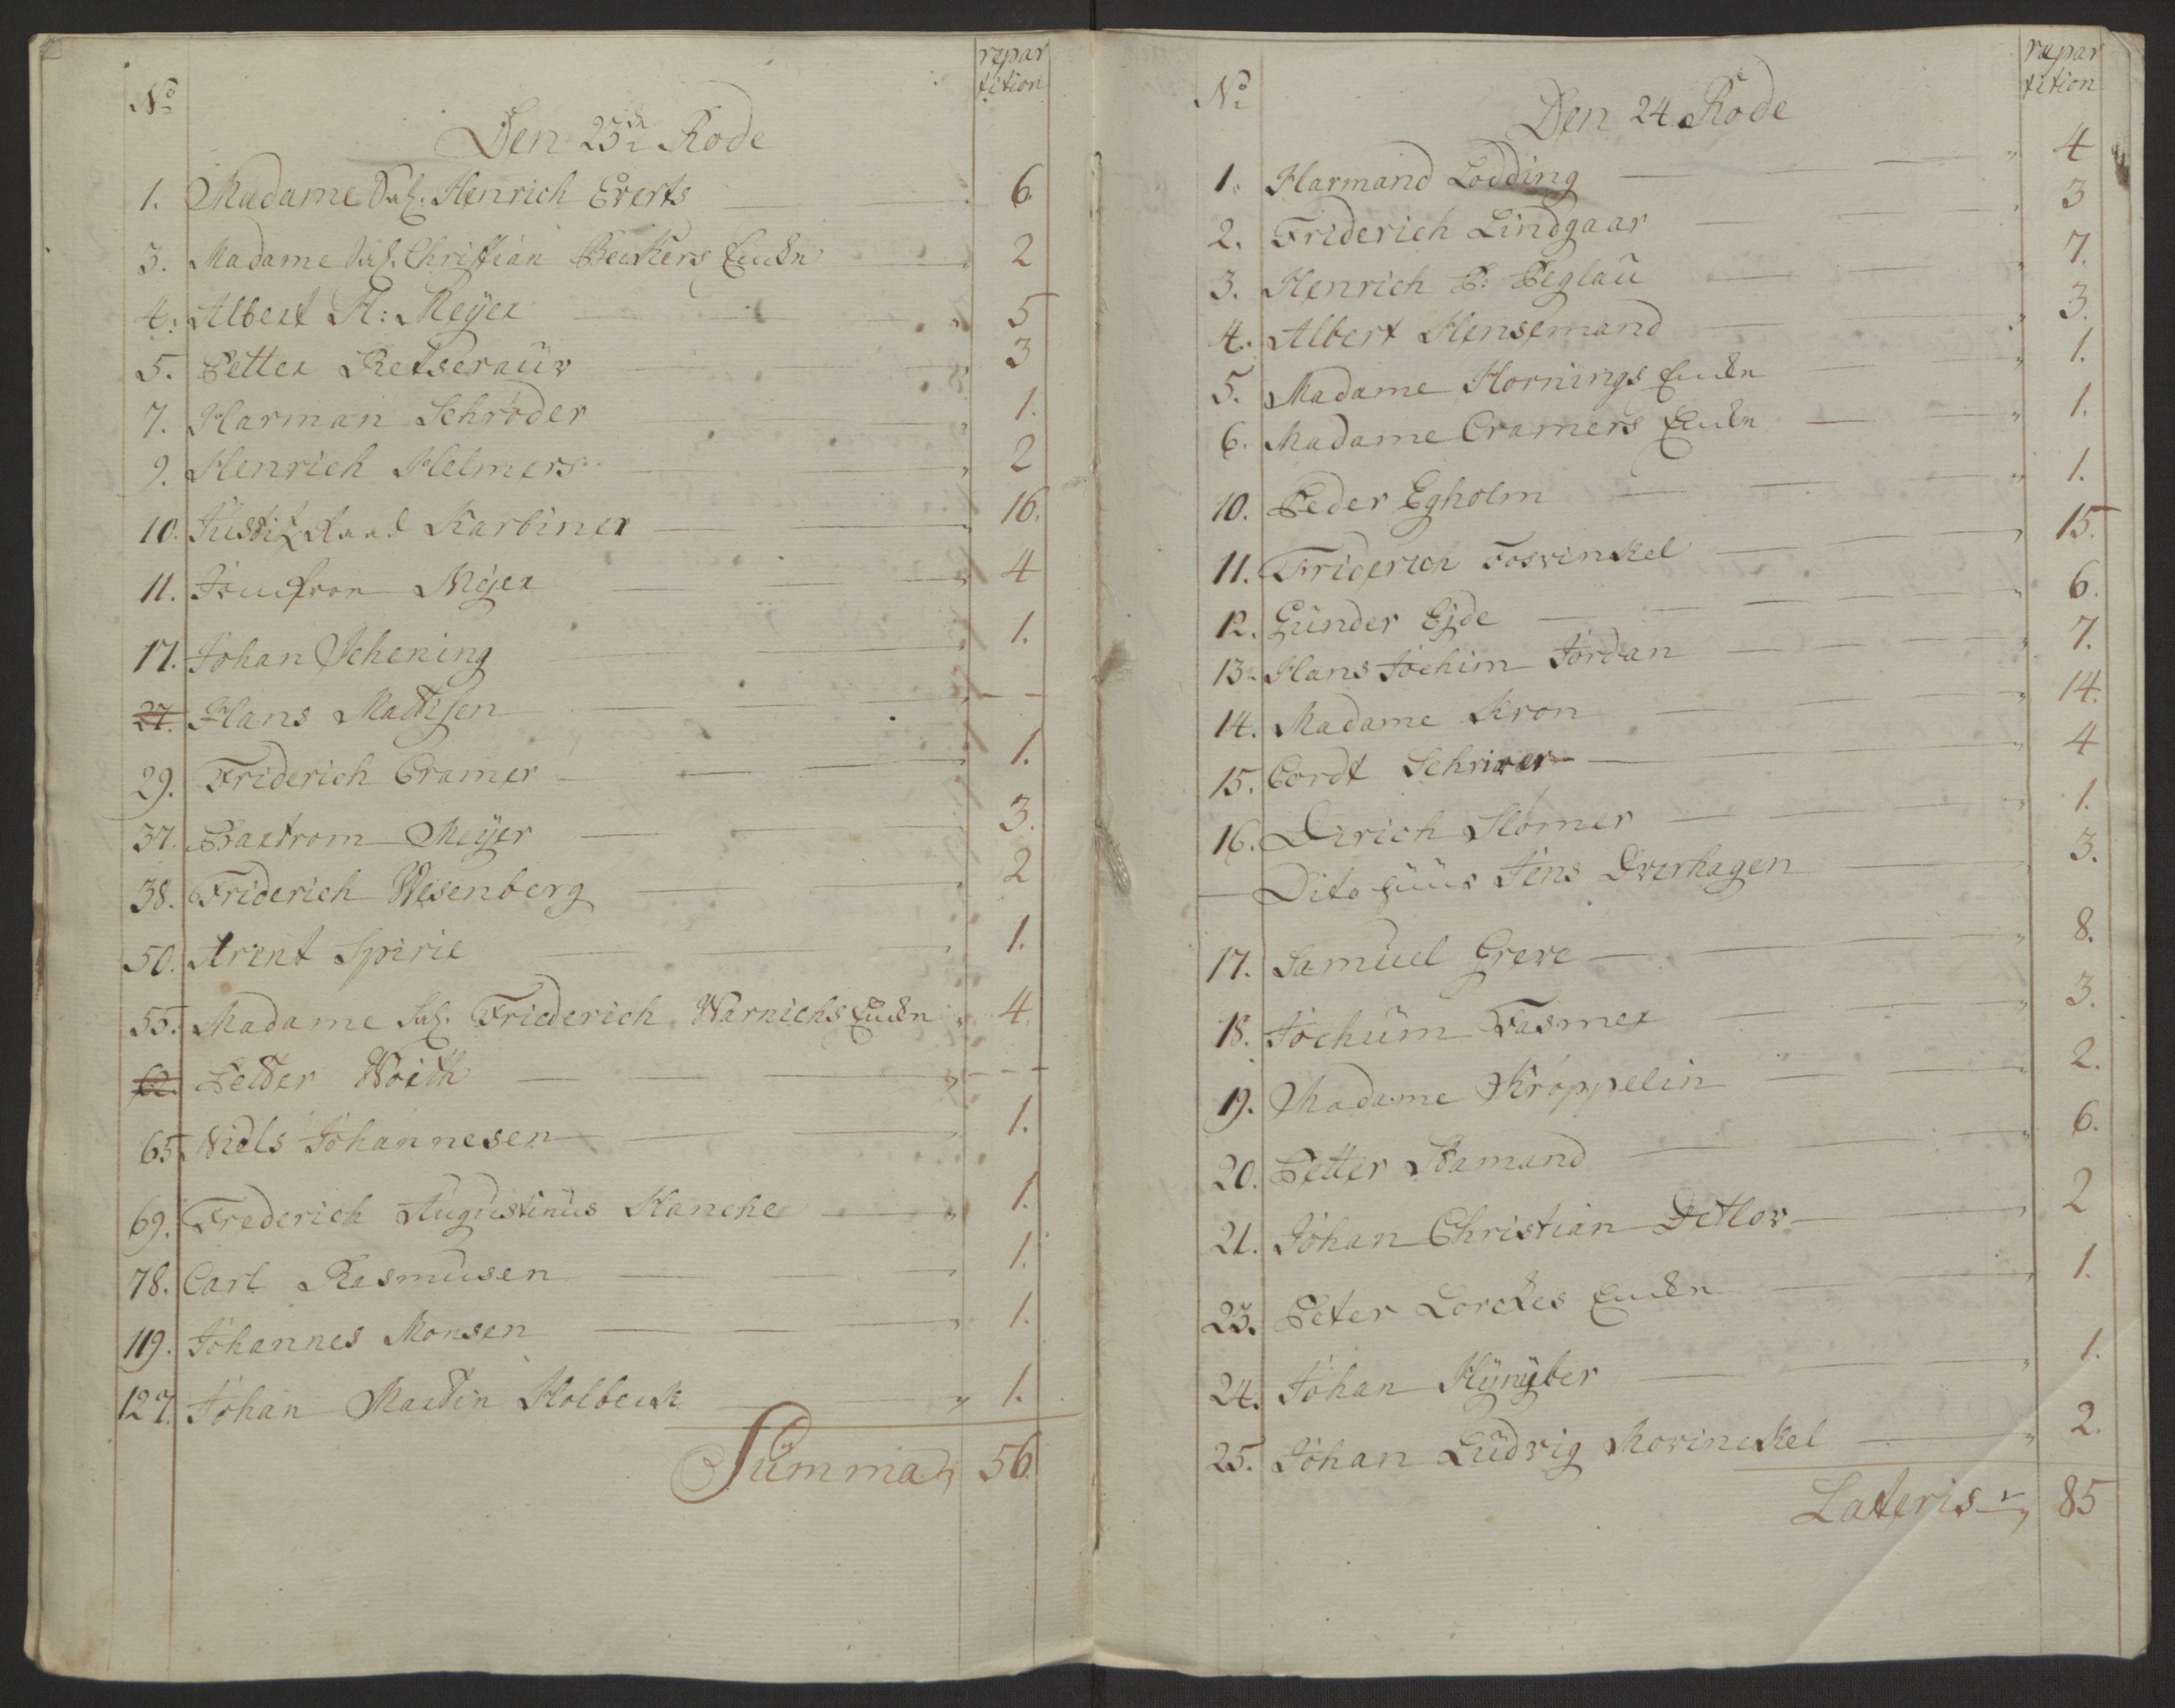 No
repar
tition
Den 23de Rode
1. Madame Sal. Henrich Everts 6
3. Madame Sal. Christian Beckers Enken 2
4. Albert H: Meyer 5
5. Petter 3
7. Harman Schröder 1.
9. Henrich Helmers 2
10. Justitz Raad Karbiner 16.
11. Jomfrou Mejer 4
17. Johan Schening 1.
27. Hans Madtisen - -
29. Friderich Cramer 1.
37. Baxtrom Meijer 3.
38. Friderich Wesenberg 2
50. Arent Spirie 1.
55. Madame Sal. Friederich Warnichs Enken 4
62. Petter Woith - - -
65 Niels Johannesen 1.
69. Frederich Augustinus Hancke 1.
78. Carl Rasmusen 1.
119. Johannes Monsen 1.
127. Johan Martin Holbeck 1.
Summa 56
No
repar
tition
Den 24 Rode
1. Harmand Lodding 4
2. Friderich Lindgaar 3
3. Henrich P: Peglau 7.
4. Albert Hensemand 3.
5. Madame Hornings Enken 1.
6. Madame Cramers Enken 1.
10. Peder Egholm 1.
11. Friderich Fosvinkel 15.
12. Günder Ejde 6.
13. Hans Jochim Jordan 7.
14. Madame Kron 14.
15. Cordt Schriver 4
16. Dirich Slömer 1.
— Dito Huus Jens Overhagen 3.
17. Samuel Greve 8.
18. Jochum Fasmer 3.
19. Madame Kröppelin 2.
20. Petter Stamand 6.
21. Johan Christian Detlov 2
23. Peter Lorckes Enken 1.
24. Johan 1.
25. Johan Ludvig Morinckel 2.
Lateris 85